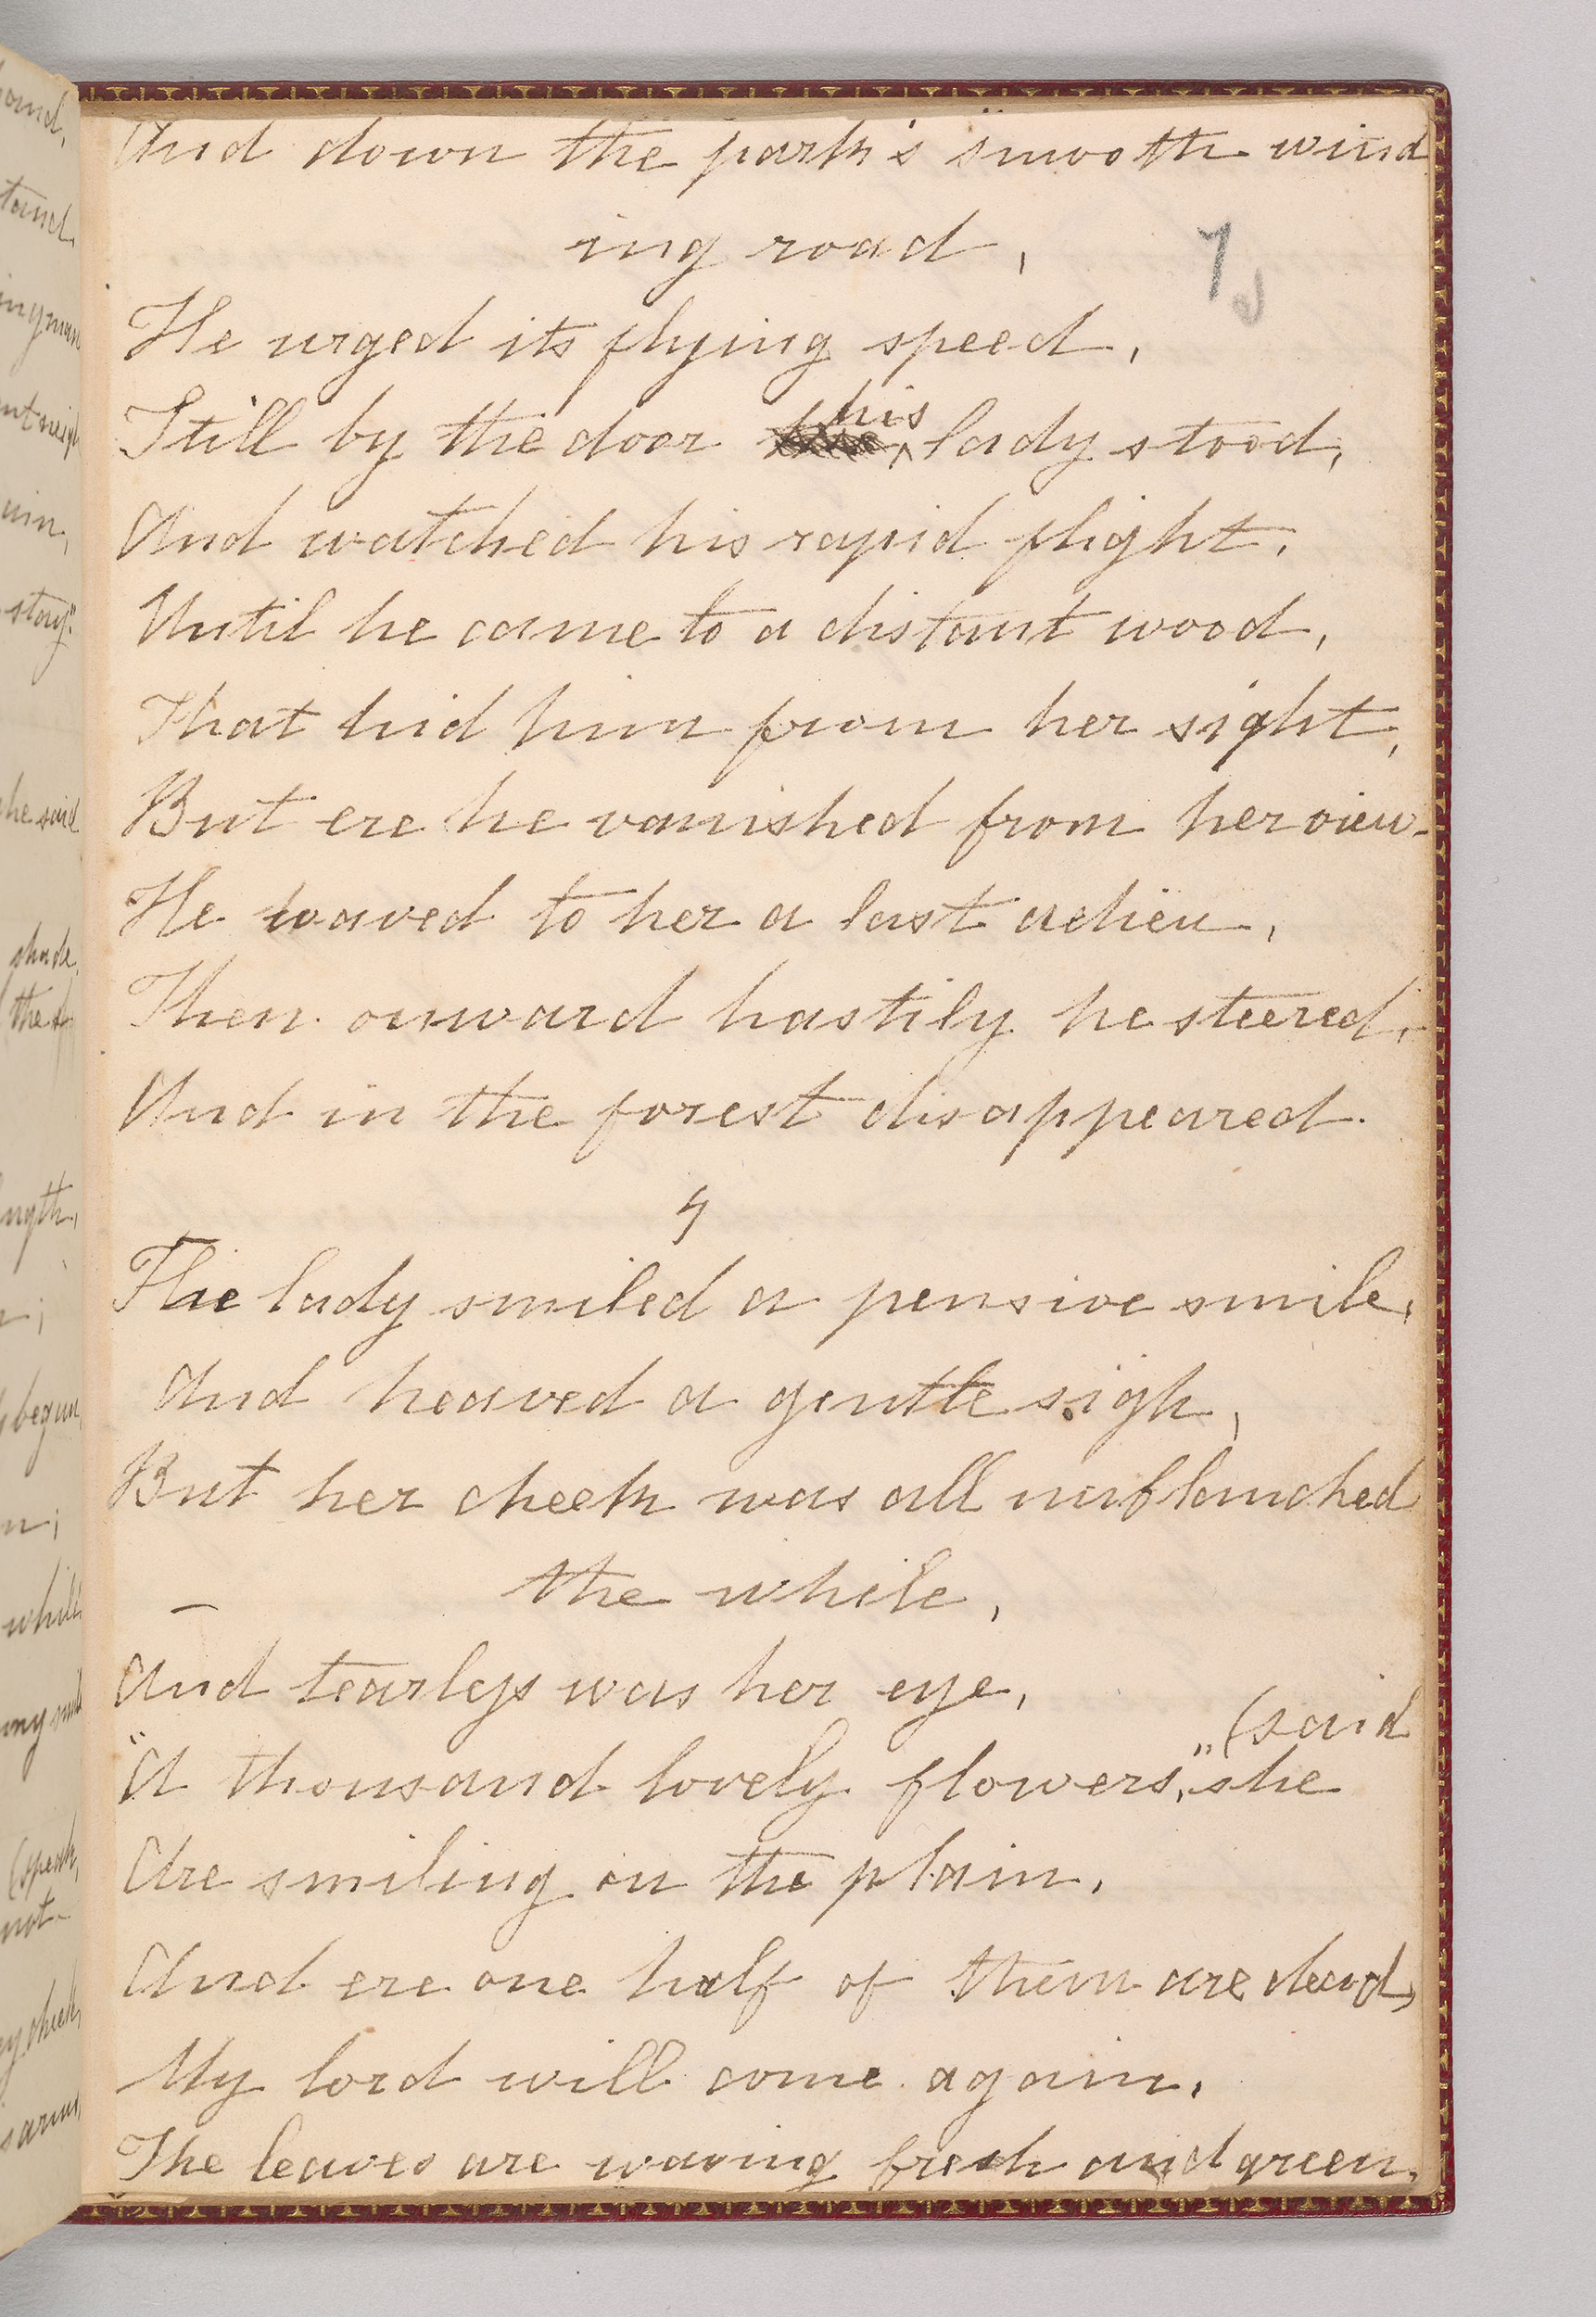 And down the park's smooth wind
ing road,
7
He urged its flying speed,
his
Still by the door lady stood,
And watched his rapid flight,
Until he came to a distant wood,
That hid him from her sight,
But ere he vanished from her view-
He waved to her a last adieu,
Then onward hastily he steered,
And in the forest disappeared.
4
The lady smiled a pensive smile,
And heaved a gentle sigh,
But her cheek was all unblanched
the while,
And tearless was her eye,
(said
"A thousand lovely flowers," she
Are smiling on the plain,
And ere one half of them are dead,
My lord will come again,
The leaves are waving fresh and green,
ound,
tand.
story"
he said
shade,
begun,
while
(speak,
not-
cheek,
arms,